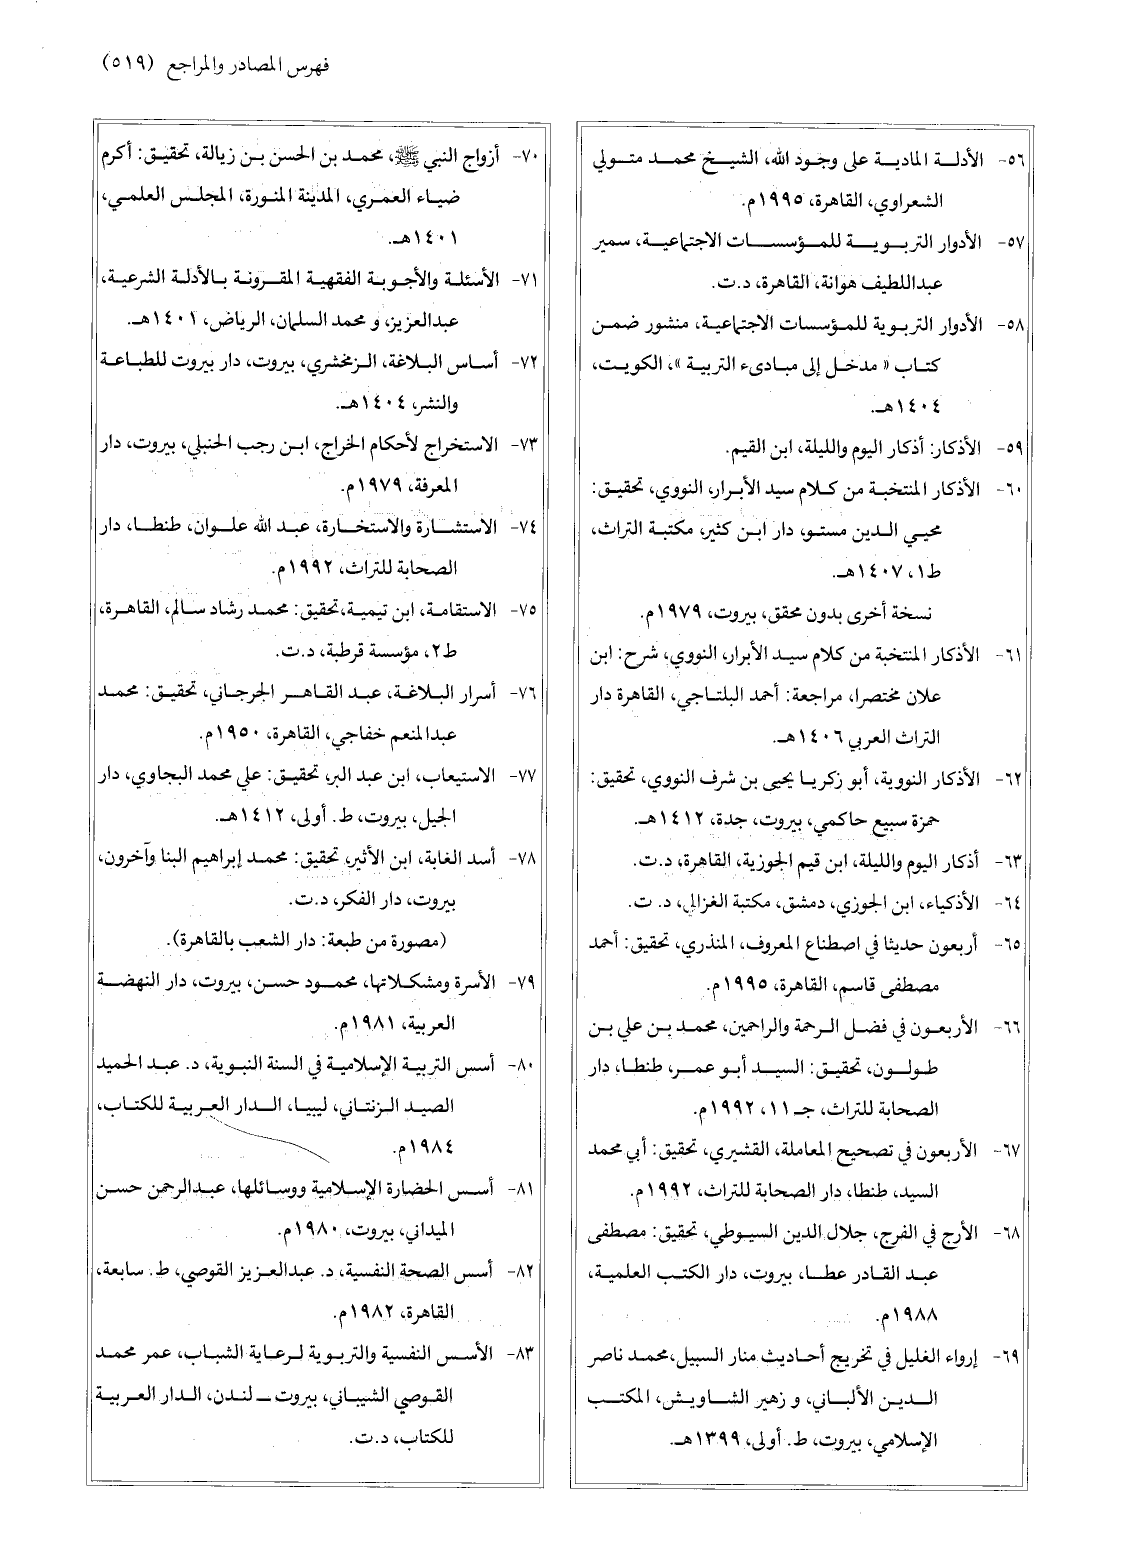 فهرس المصادر والمراجع (٥١٩)
٥٦- الأدلة المادية على وجود الله، الشيخ محمد متولي
الشعراوي، القاهرة، ١٩٩٥م.
٥٧- الأدوار التربوية للمؤسسات الاجتماعية، سمير
عبداللطيف هوانة، القاهرة، د.ت.
٥٨- الأدوار التربوية للمؤسسات الاجتماعية، منشور ضمن
كتاب « مدخل إلى مبادىء التربية »، الكويت،
١٤٠٤هـ.
٥٩- الأذكار: أذكار اليوم والليلة، ابن القيم.
٦٠- الأذكار المنتخبة من كلام سيد الأبرار، النووي، تحقيق:
محيي الدين مستو، دار ابن كثير، مكتبة التراث،
ط١، ١٤٠٧هـ.
نسخة أخرى بدون محقق، بيروت، ١٩٧٩م.
٦١- الأذكار المنتخبة من كلام سيد الأبرار، النووي، شرح: ابن
علان مختصرا، مراجعة: أحمد البلتاجي، القاهرة دار
التراث العربي ١٤٠٦هـ.
٦٢- الأذكار النووية، أبو زكريا يحيى بن شرف النووي، تحقيق:
حمزة سبيع حاكمي، بيروت، جدة، ١٤١٢هـ.
٦٣- أذكار اليوم والليلة، ابن قيم الجوزية، القاهرة، د.ت.
٦٤- الأذكياء، ابن الجوزي، دمشق، مكتبة الغزالي، د. ت.
٦٥- أربعون حديثا في اصطناع المعروف، المنذري، تحقيق: أحمد
مصطفى قاسم، القاهرة، ١٩٩٥م.
٦٦- الأربعون في فضل الرحمة والراحمين، محمد بن علي بن
طولون، تحقيق: السيد أبو عمر، طنطا، دار
الصحابة للتراث، جـ١١، ١٩٩٢م.
٦٧- الأربعون في تصحيح المعاملة، القشيري، تحقيق: أبي محمد
السيد، طنطا، دار الصحابة للتراث، ١٩٩٢م.
٦٨- الأرج في الفرج، جلال الدين السيوطي، تحقيق: مصطفى
عبد القادر عطا، بيروت، دار الكتب العلمية،
١٩٨٨م.
٦٩- إرواء الغليل في تخريج أحاديث منار السبيل، محمد ناصر
الدين الألباني، و زهير الشاويش، المكتب
الإسلامي، بيروت، ط. أولى، ١٣٩٩هـ.
٧٠- أزواج النبي ﷺ، محمد بن الحسن بن زبالة، تحقيق: أكرم
ضياء العمري، المدينة المنورة، المجلس العلمي،
١٤٠١هـ.
٧١- الأسئلة والأجوبة الفقهية المقرونة بالأدلة الشرعية،
عبدالعزيز، و محمد السلمان، الرياض، ١٤٠١هـ.
٧٢- أساس البلاغة، الزمخشري، بيروت، دار بيروت للطباعة
والنشر، ١٤٠٤هـ.
٧٣- الاستخراج لأحكام الخراج، ابن رجب الحنبلي، بيروت، دار
المعرفة، ١٩٧٩م.
٧٤- الاستشارة والاستخارة، عبد الله علوان، طنطا، دار
الصحابة للتراث، ١٩٩٢م.
٧٥- الاستقامة، ابن تيمية، تحقيق: محمد رشاد سالم، القاهرة،
ط٢، مؤسسة قرطبة، د.ت.
٧٦- أسرار البلاغة، عبد القاهر الجرجاني، تحقيق: محمد
عبدالمنعم خفاجي، القاهرة، ١٩٥٠م.
٧٧- الاستيعاب، ابن عبد البر، تحقيق: علي محمد البجاوي، دار
الجيل، بيروت، ط. أولى، ١٤١٢هـ.
٧٨- أسد الغابة، ابن الأثير، تحقيق: محمد إبراهيم البنا وآخرون،
بيروت، دار الفكر، د.ت.
(مصورة من طبعة: دار الشعب بالقاهرة).
٧٩- الأسرة ومشكلاتها، محمود حسن، بيروت، دار النهضة
العربية، ١٩٨١م.
٨٠- أسس التربية الإسلامية في السنة النبوية، د. عبد الحميد
الصيد الزنتاني، ليبيا، الدار العربية للكتاب،
١٩٨٤م.
٨١- أسس الحضارة الإسلامية ووسائلها، عبدالرحمن حسن
الميداني، بيروت، ١٩٨٠م.
٨٢- أسس الصحة النفسية، د. عبدالعزيز القوصي، ط. سابعة،
القاهرة، ١٩٨٢م.
٨٣- الأسس النفسية والتربوية لرعاية الشباب، عمر محمد
القوصي الشيباني، بيروت ــ لندن، الدار العربية
للكتاب، د.ت.